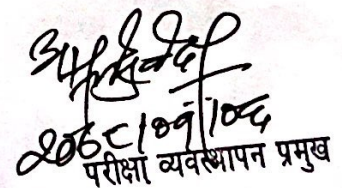 २०६८।०९।०८
परीक्षा व्यवस्थापन प्रमुख